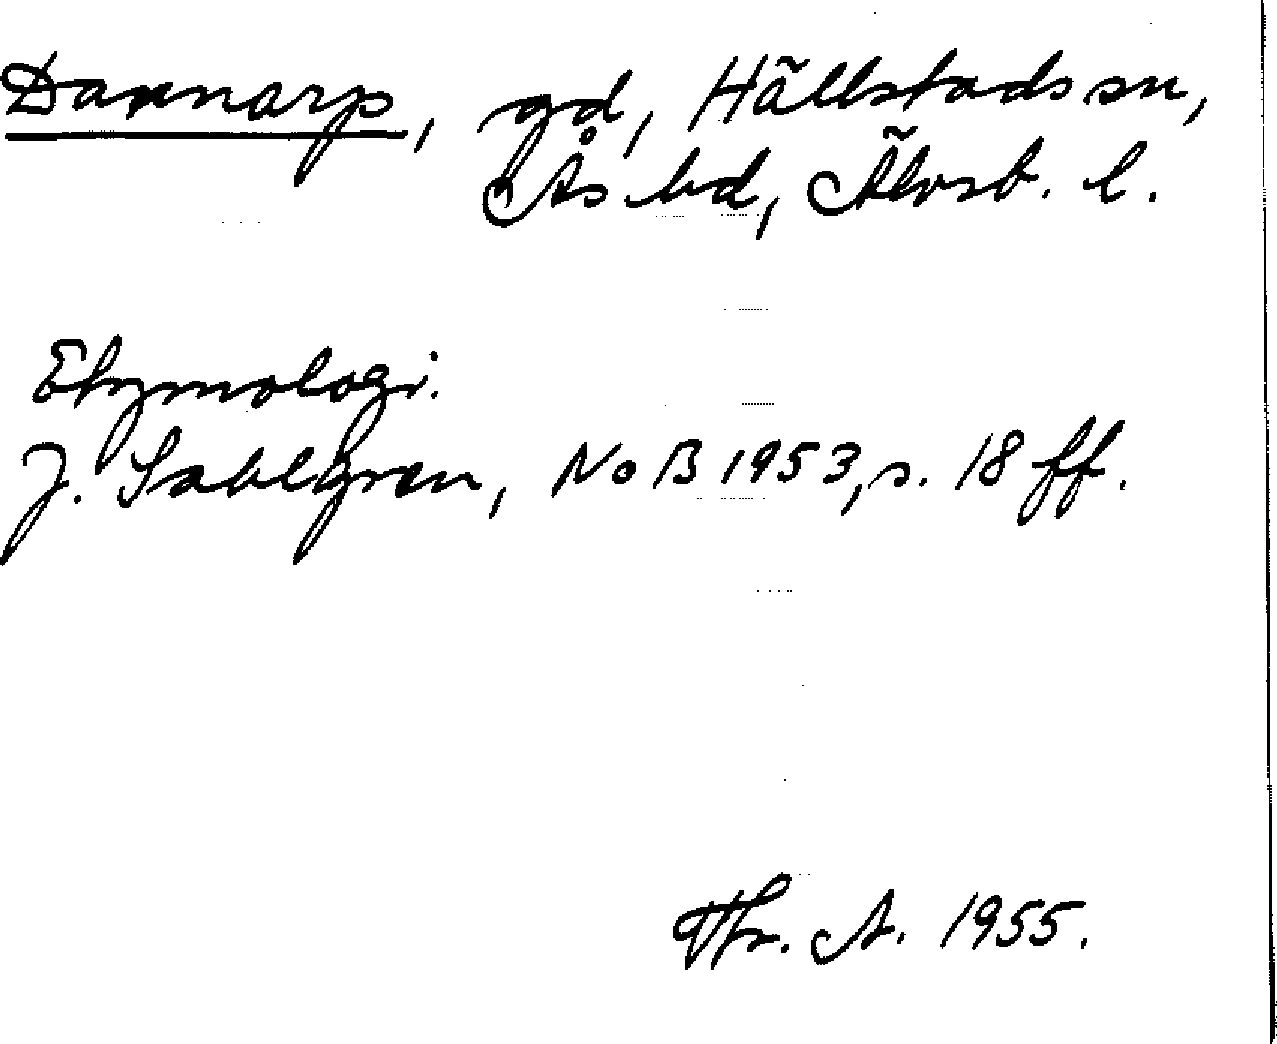 Dannarp, gd, Hällstads sn,
Ås hd, Älvsb. l.
Etymologi.
J. Sahlgren, NoB 1953, s. 18 ff.
Thr. A. 1955.